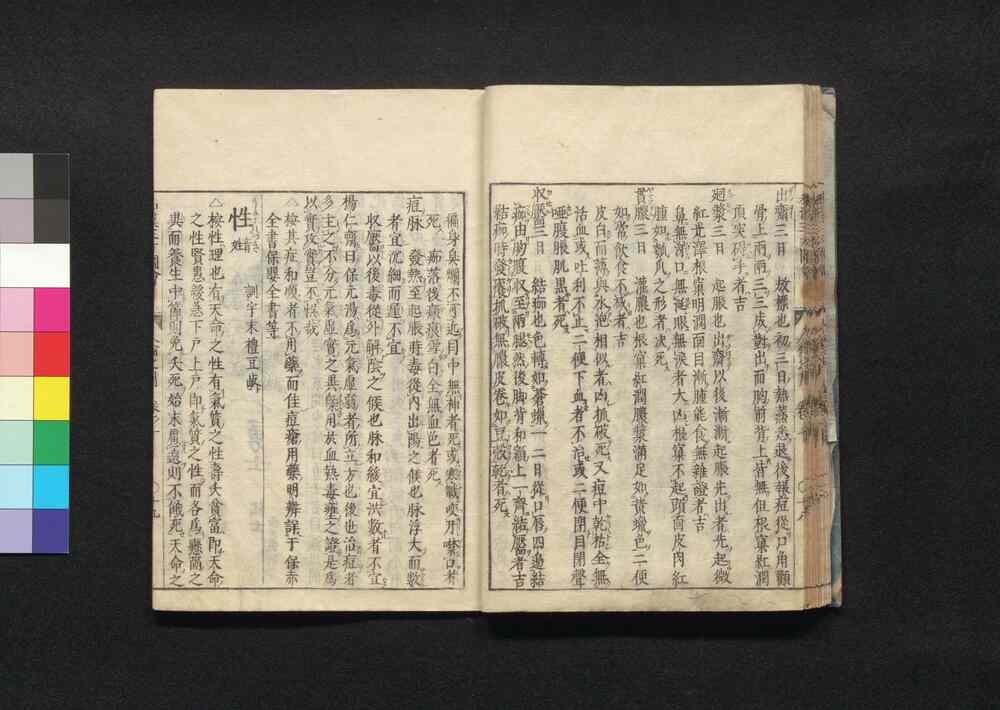 出齊三日 放標也初三日熱蒸悉退後報痘從口角顴
骨上兩兩三三成對出而胸前背上皆無但根窠紅潤
頂突碍手者吉
廻漿三日 起脹也出齊以後漸漸起脹先出者先起微
紅光澤根窠明潤面目漸腫能食無雜證者吉
鼻無涕口無涎眼無淚者大凶根窠不起頭面皮肉紅
腫如瓠瓜之形者次死
貫膿三日 灌膿也根窠紅潤膿漿滿足如黃蠟色二便
如常飲食不減者吉
皮白而薄與水泡相似者凶抓破死又痘中乾枯全無
沽血或吐利不止二便下血者不治或二便閉目閉聲
啞腹脹肌黑者死
収靨三日 結痂也色轉如蒼蠟一二日從口唇四邊結
痂由胸腹収至兩腿然後脚背和額上一齊結靨者吉
結痂時發癢抓破無膿皮卷如豆殼乾者死
徧身臭爛不可近目中無神者死或寒戰咬牙噤口者
死 痂落後瘢痕雪白全無血色者死
痘脉 發熱至起脹時毒從內出陽之候也脉浮大而數
者宜沉細而遲不宜
収靨以後毒從外解陰之候也脉和緩宜洪數者不宜
楊仁齋曰保元湯爲元氣虛弱者所立方也後世治痘者
多主之不分元氣虛實之異槩用於血熱毒壅之證是爲
以實攻實豈不快哉
△按其症和暖者不用藥而佳痘瘡用藥明辨詳于保赤
全書保嬰全書等
性 姓 訓宇末禮豆岐
△按性理也有天命之性有氣質之性壽夭貧富即天命
之性賢愚緩急下戸上戸即氣質之性而各爲懸隔之
異而養生中節則免夭死始末愚意則不餓死天命之